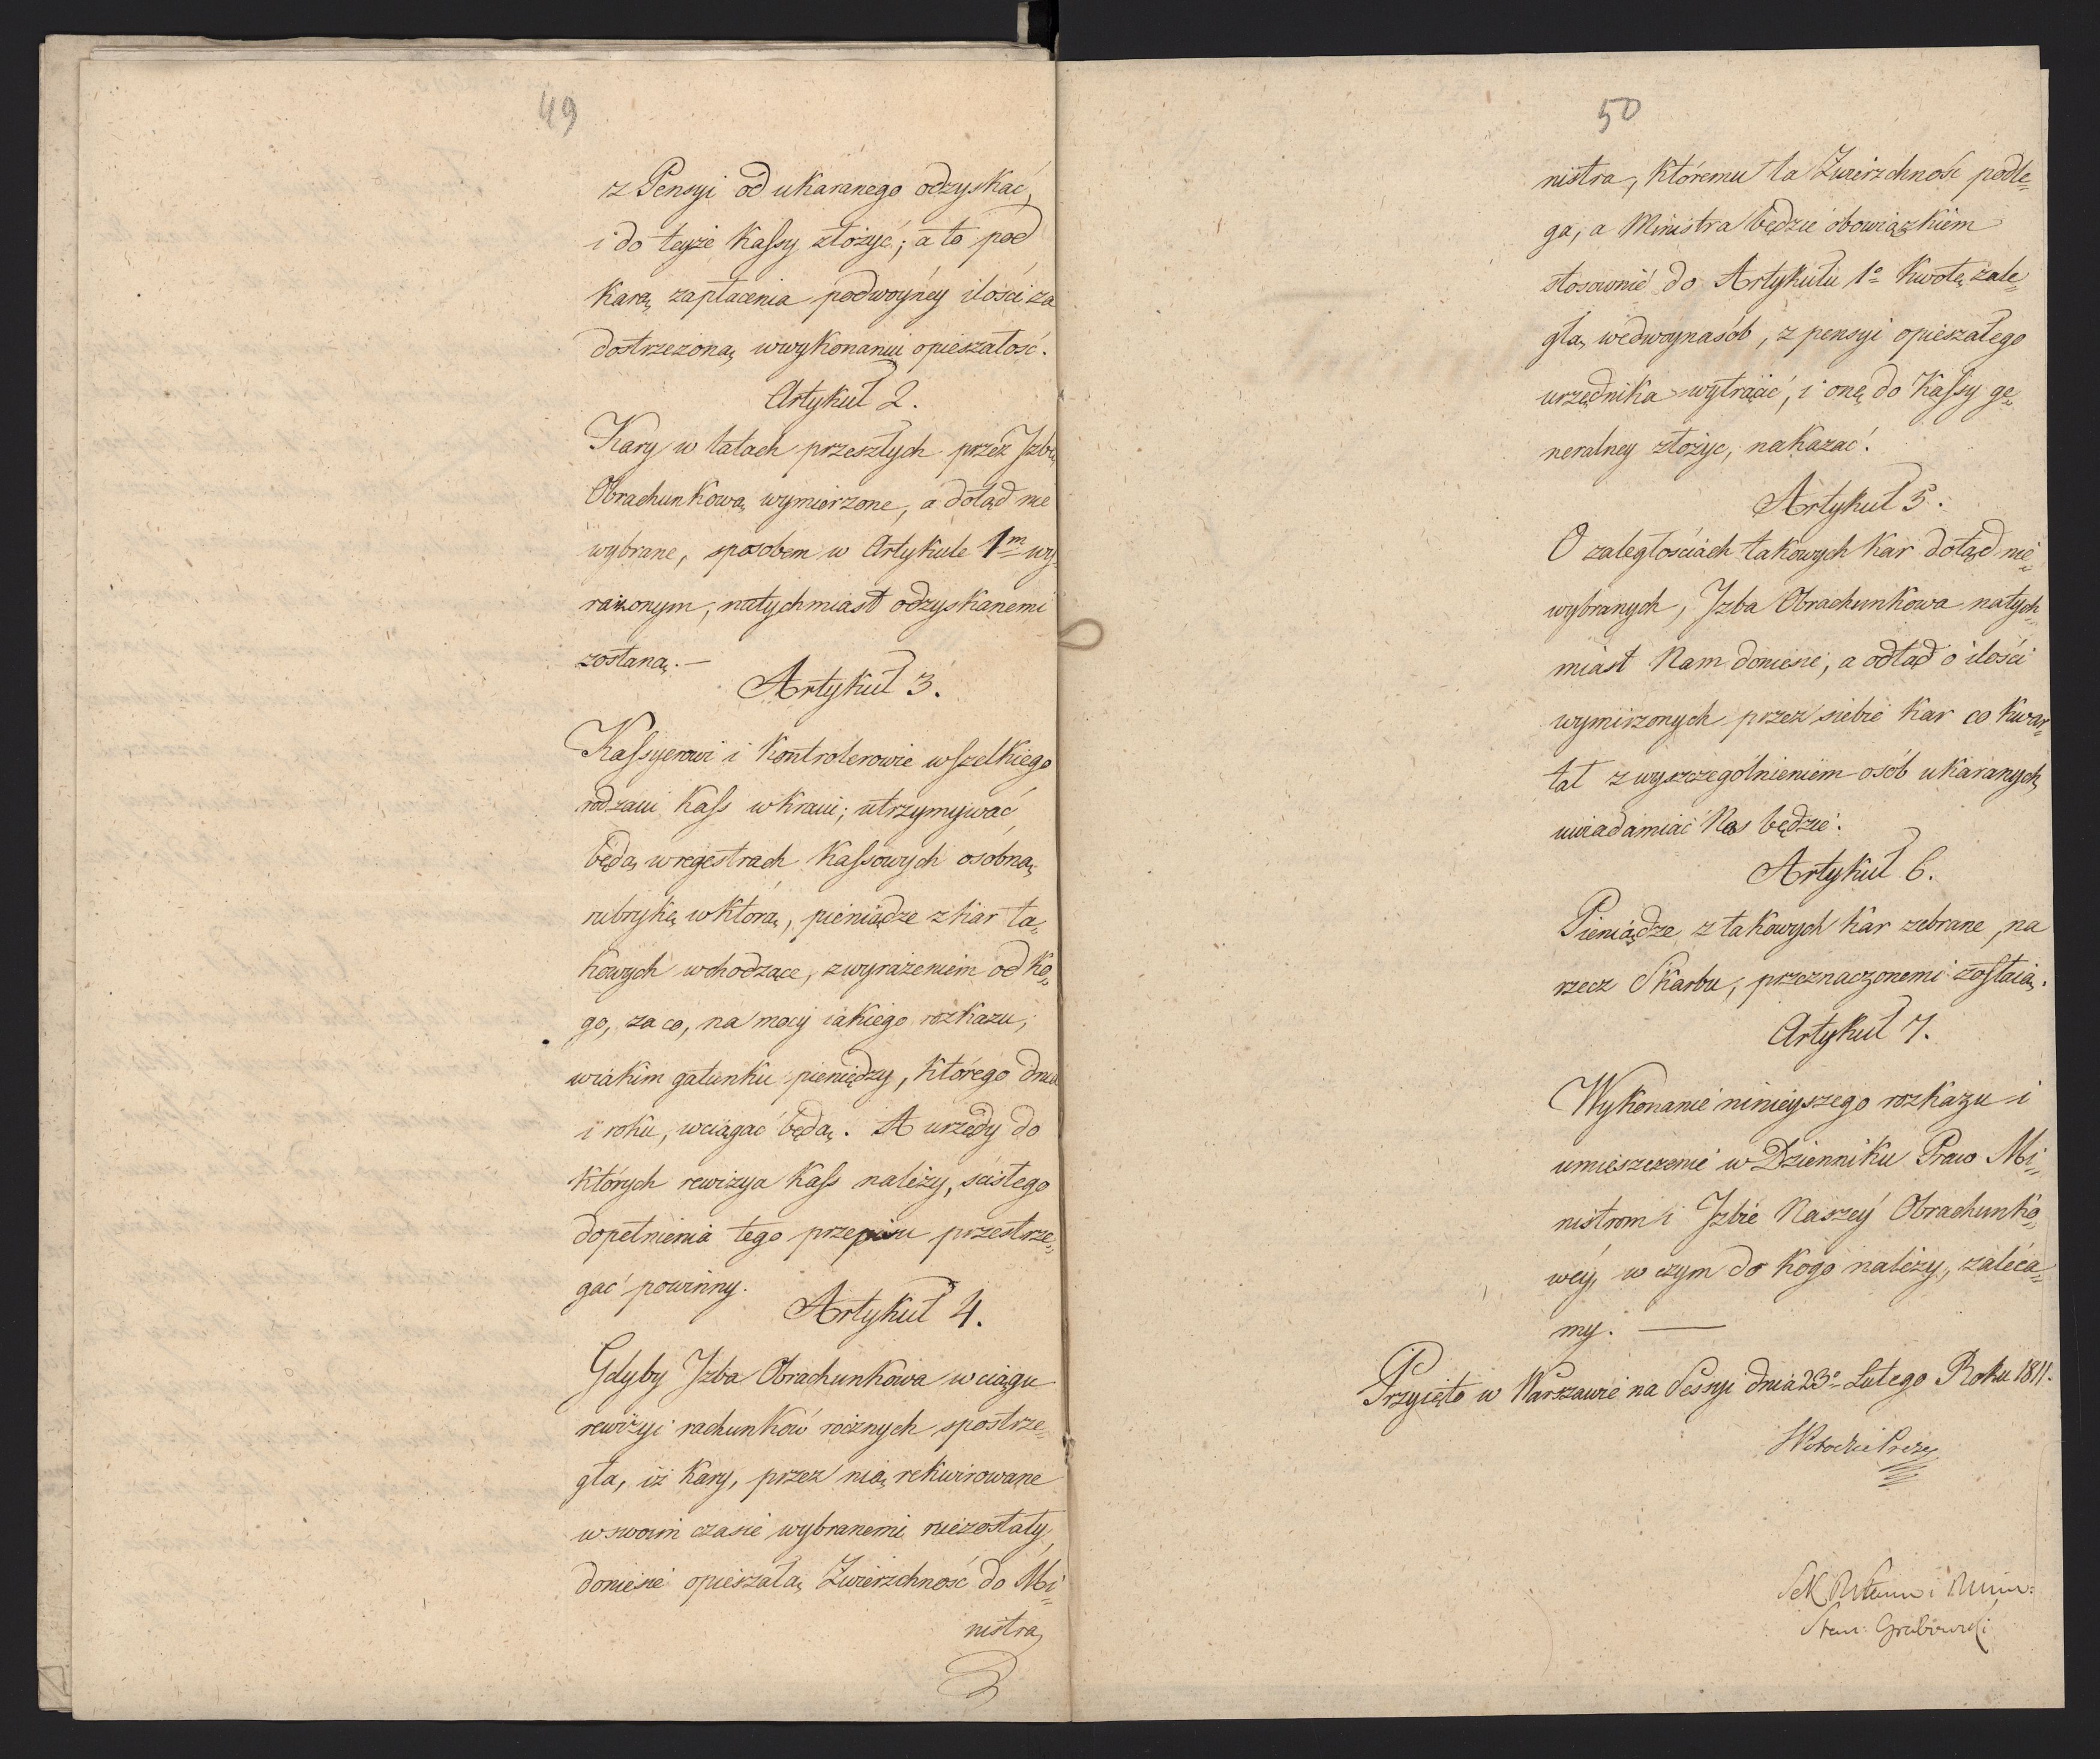 49
z Pensyi od ukaranego odzyskać,
i do teyże Kassy złożyć; a to pod
karą zapłacenia podwoyney ilości za
dostrzezoną wwykonaniu opieszałość.
Artykuł 2.
Kary w latach przeszłych przez Jzbę
Obrachunkową wymierzone, a dotąd nie
wybrane, sposobem w Artykule 1m wy-
rażonym, natychmiast odzyskanemi
zostaną. —
Artykuł 3.
Kassyerowi i Kontrolerowie wszelkiego
rodzaiu Kass w Kraiu; utrzymywać
będą w regestrach Kassowych osobną
rubrykę w którą, pieniądze z kar ta=
kowych wchodzące, z wyrażeniem od ko=
go, za co, na mocy iakiego rozkazu,
w iakim gatunku pieniędzy, którego dnia
i roku, wciągać będą. A urzędy do
których rewizya Kass należy, ścisłego
dopełnienia tego przepisu przestrze=
gać powinny.
Artykuł 4.
Gdyby Jzba Obrachunkowa w ciągu
rewizyi rachunków rocznych spostrze=
gła, iż kary, przez nią rekwirowane
w swoim czasie wybranemi niezostały,
doniesie opieszałą Zwierzchność do Mi=
nistra,
50
nistra, któremu ta Zwierzchność podle=
ga, a Ministra będzie obowiązkiem
stosownie do Artykułu 1o Kwotę zale=
głą wedwoynasób, z pensyi opieszałego
urzędnika wytrącić, i onę do Kassy ge=
neralney złożyc, nakazać.
Artykuł 5.
O zaległościach takowych kar dotąd nie=
wybranych, Jzba Obrachunkowa natych=
miast Nam doniesie, a odtąd o ilości
wymirzonych przez siebie kar co kwar=
tał z wyszczególnieniem osób ukaranych,
uwiadamiać Nas będzie.
Artykuł 6.
Pieniądze z takowych kar zebrane, na
rzecz Skarbu, przeznaczonemi zostaią.
Artykuł 7.
Wykonanie ninieyszego rozkazu i
umieszczenie w Dzienniku Praw Mi=
nistrom i Jzbie Naszey Obrachunko=
wéy, w czym do kogo należy, zaléca=
my. —
Przyięto w Warszawie na Sessyi dnia 23o Lutego Roku 1811.
Stan: Grabowski